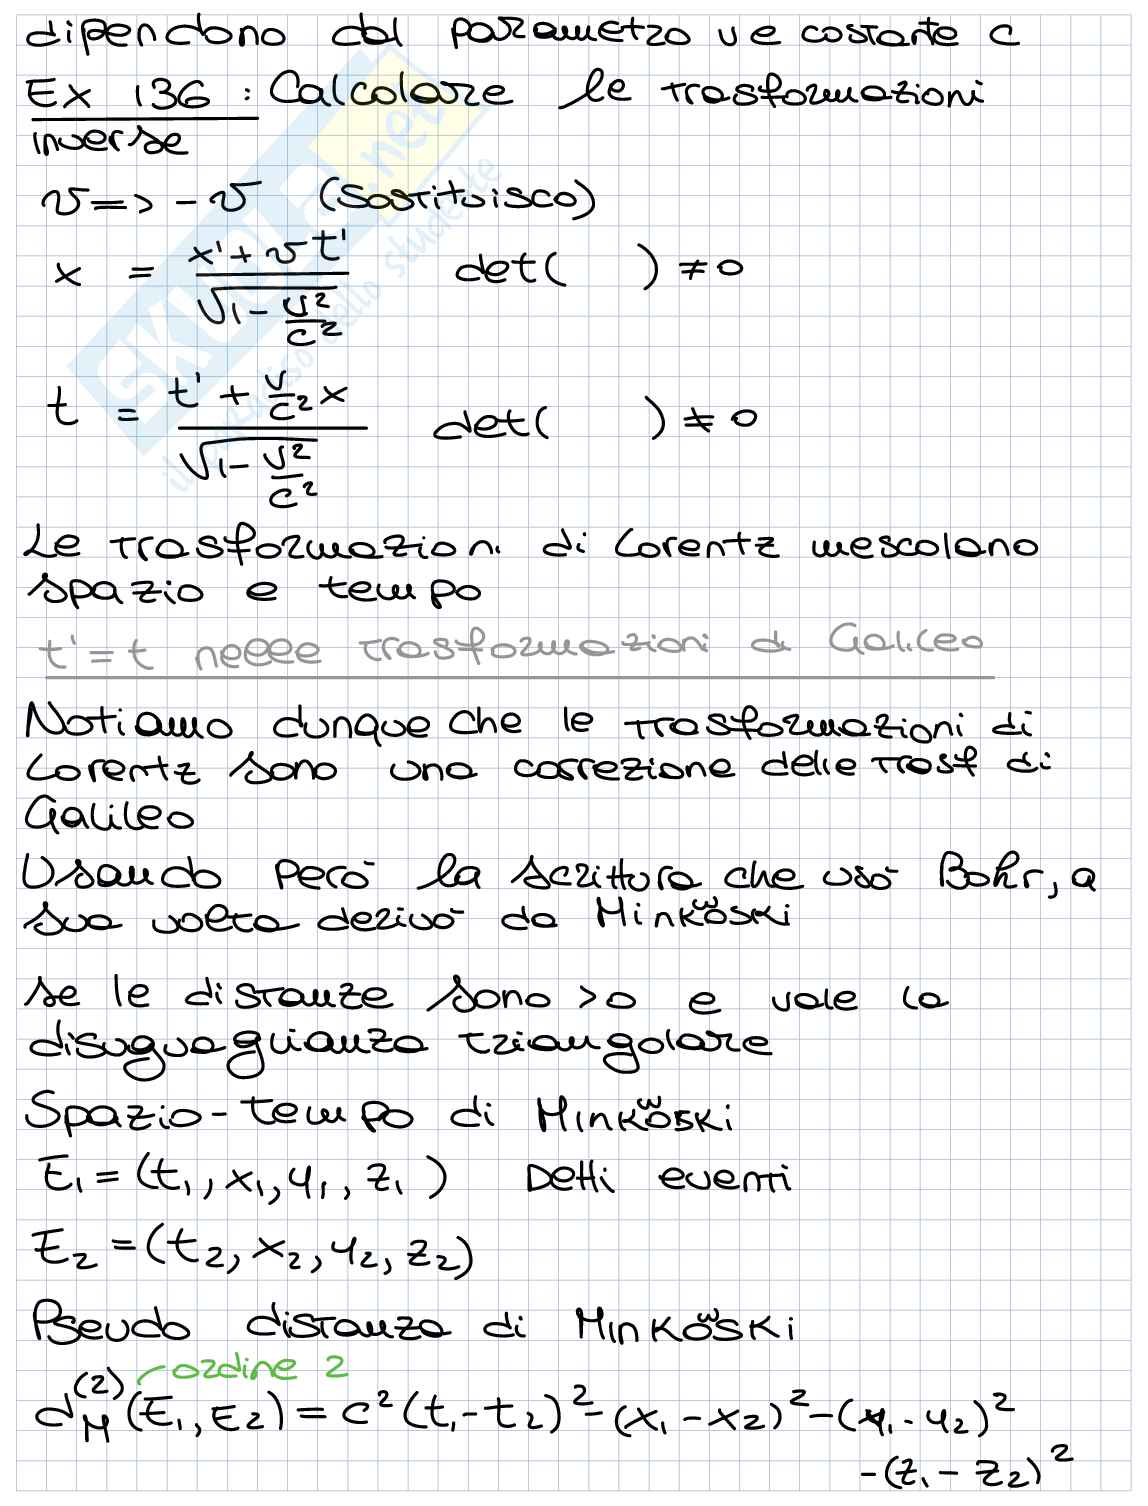 dipendono dal parametro v e costante c
Ex 136 : Calcolare le trasformazioni
inverse
v => - v (Sostituisco)
x = (x' + v t') / √(1 - v²/c²) det( ) ≠ 0
t = (t' + v/c² x) / √(1 - v²/c²) det( ) ≠ 0
Le trasformazioni di Lorentz mescolano
spazio e tempo
t' = t nelle trasformazioni di Galileo
Notiamo dunque che le trasformazioni di
Lorentz sono una correzione delle trasf di
Galileo
Usando però la scrittura che usò Bohr, a
sua volta derivò da Minkowski
se le distanze sono >0 e vale la
disuguaglianza triangolare
Spazio-tempo di Minkowski
E₁ = (t₁, x₁, y₁, z₁) Detti eventi
E₂ = (t₂, x₂, y₂, z₂)
Pseudo distanza di Minkowski
ordine 2
d_M^(2) (E₁, E₂) = c² (t₁ - t₂)² - (x₁ - x₂)² - (y₁ - y₂)²
- (z₁ - z₂)²
SKUOLA.net